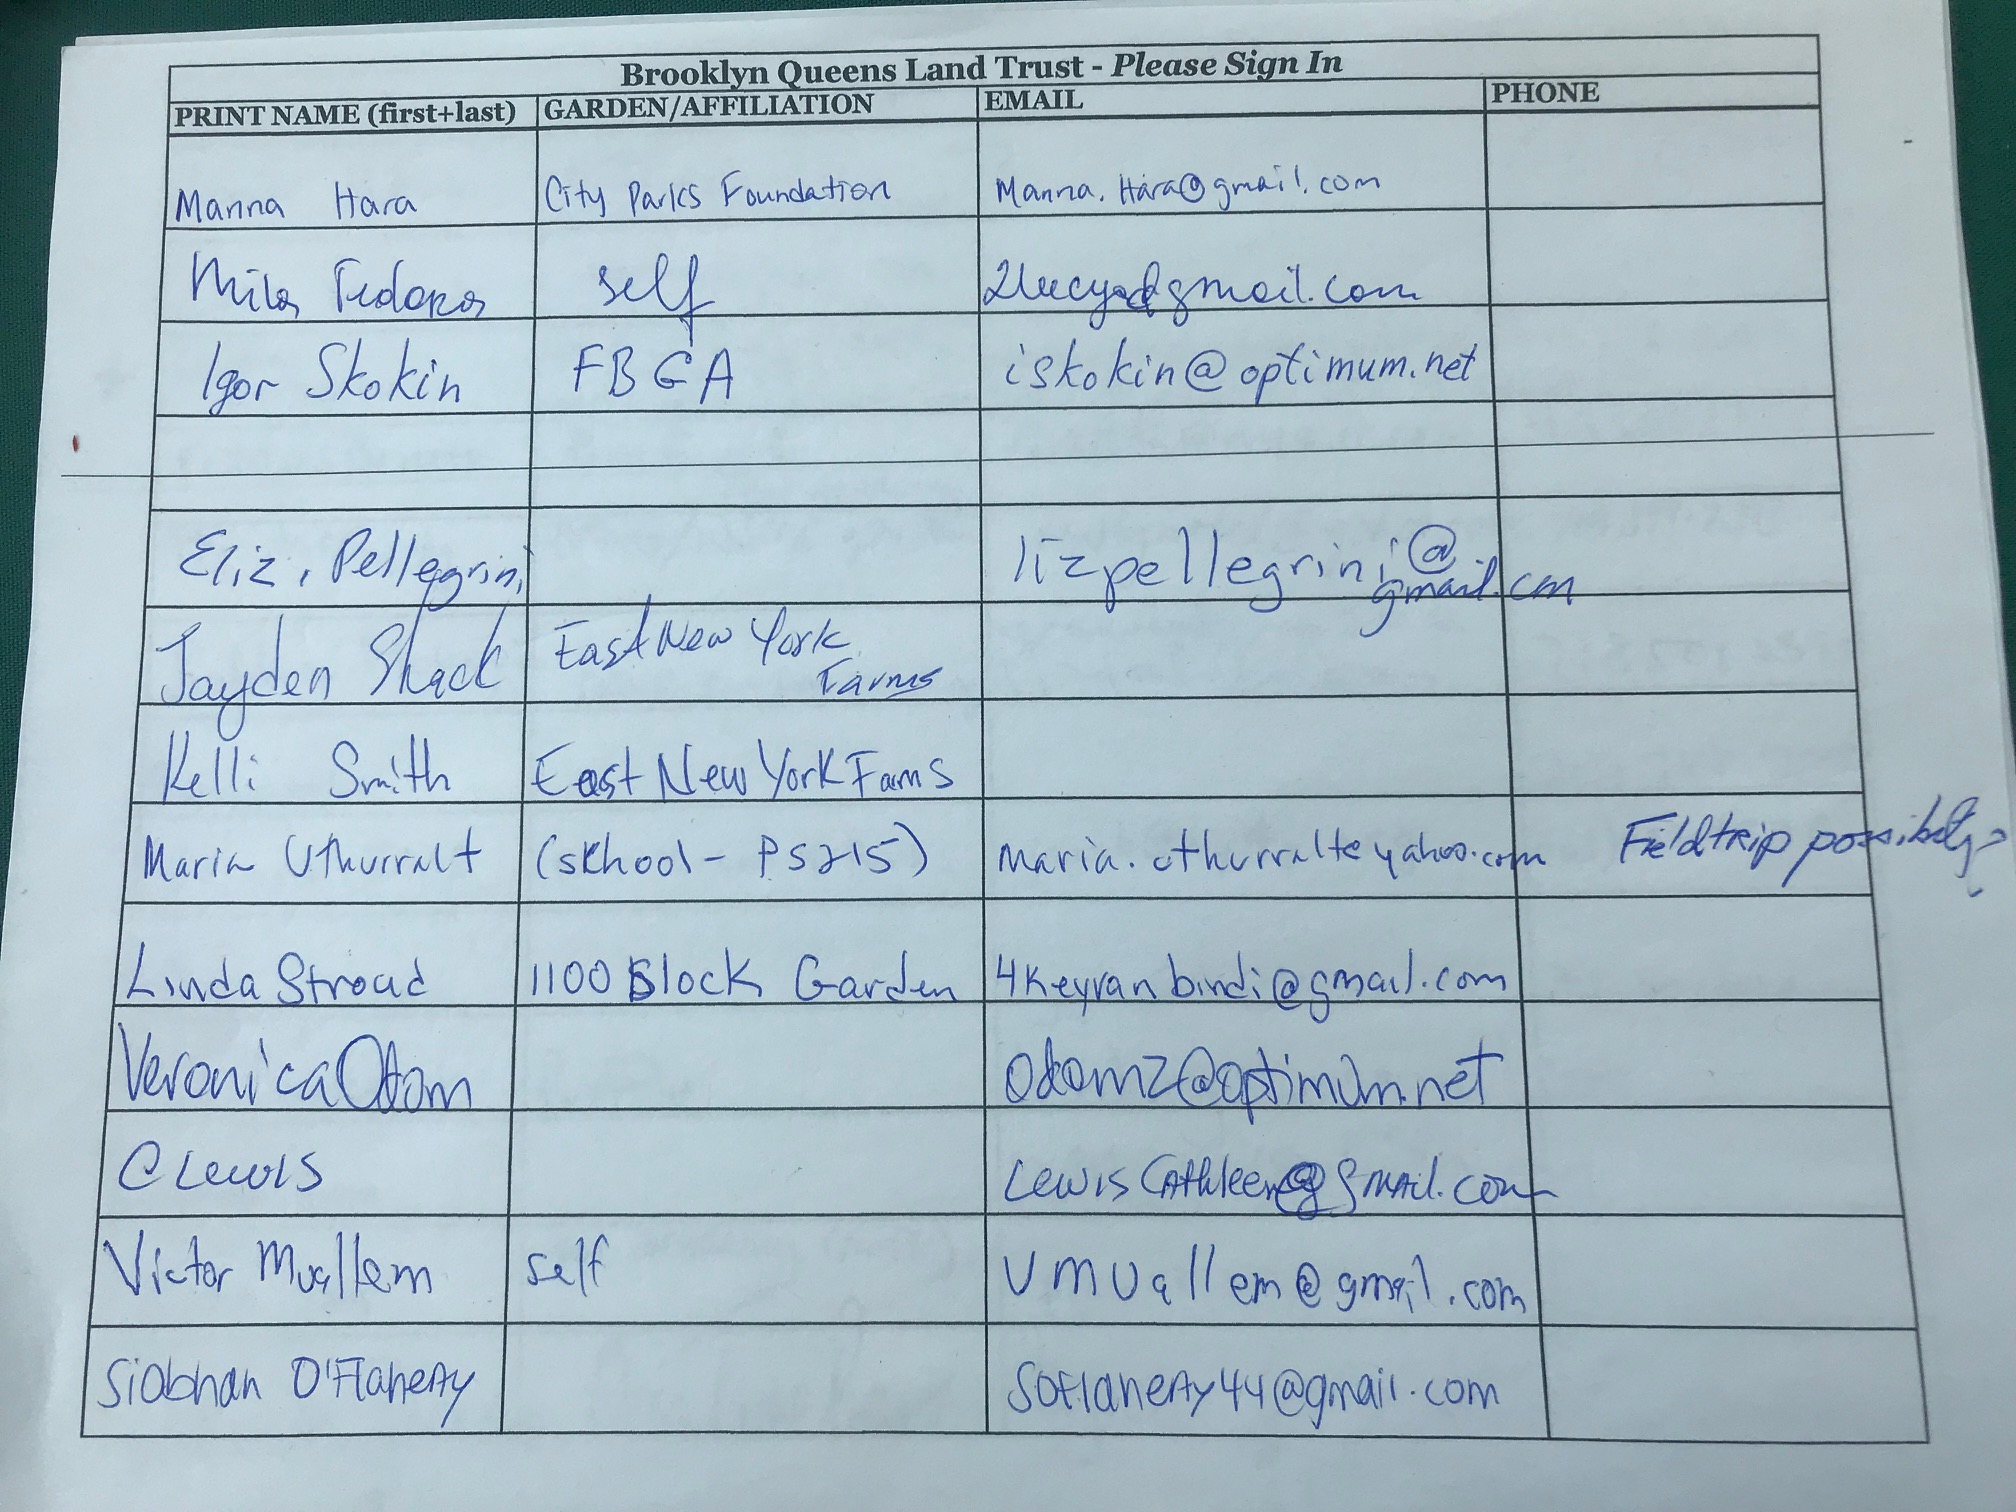 Brooklyn Queens Land Trust - Please Sign In
PRINT NAME (first+last) GARDEN/AFFILIATION EMAIL PHONE
Manna Hara City Parks Foundation Manna.Hara@gmail.com
Mila self
Igor Skokin FBGA iskokin@optimum.net
Eliz. Pellegrini lizpellegrini@
gmail.cm
Jayden Shack East New York
Farms
Kelli Smith East New York Farms
Maria Uthurralt (skhool - PS215) maria.uthurralt@yahoo.com Fieldtrip
Linda Stroud 1100 Block Garden 4Keyvanbindi@gmail.com
Veronica Odom odomz@optimum.net
C Lewis LewisCathleen@gmail.com
Victor Muallem self vmuallem@gmail.com
Siobhan O'Flaherty soflaherty44@gmail.com